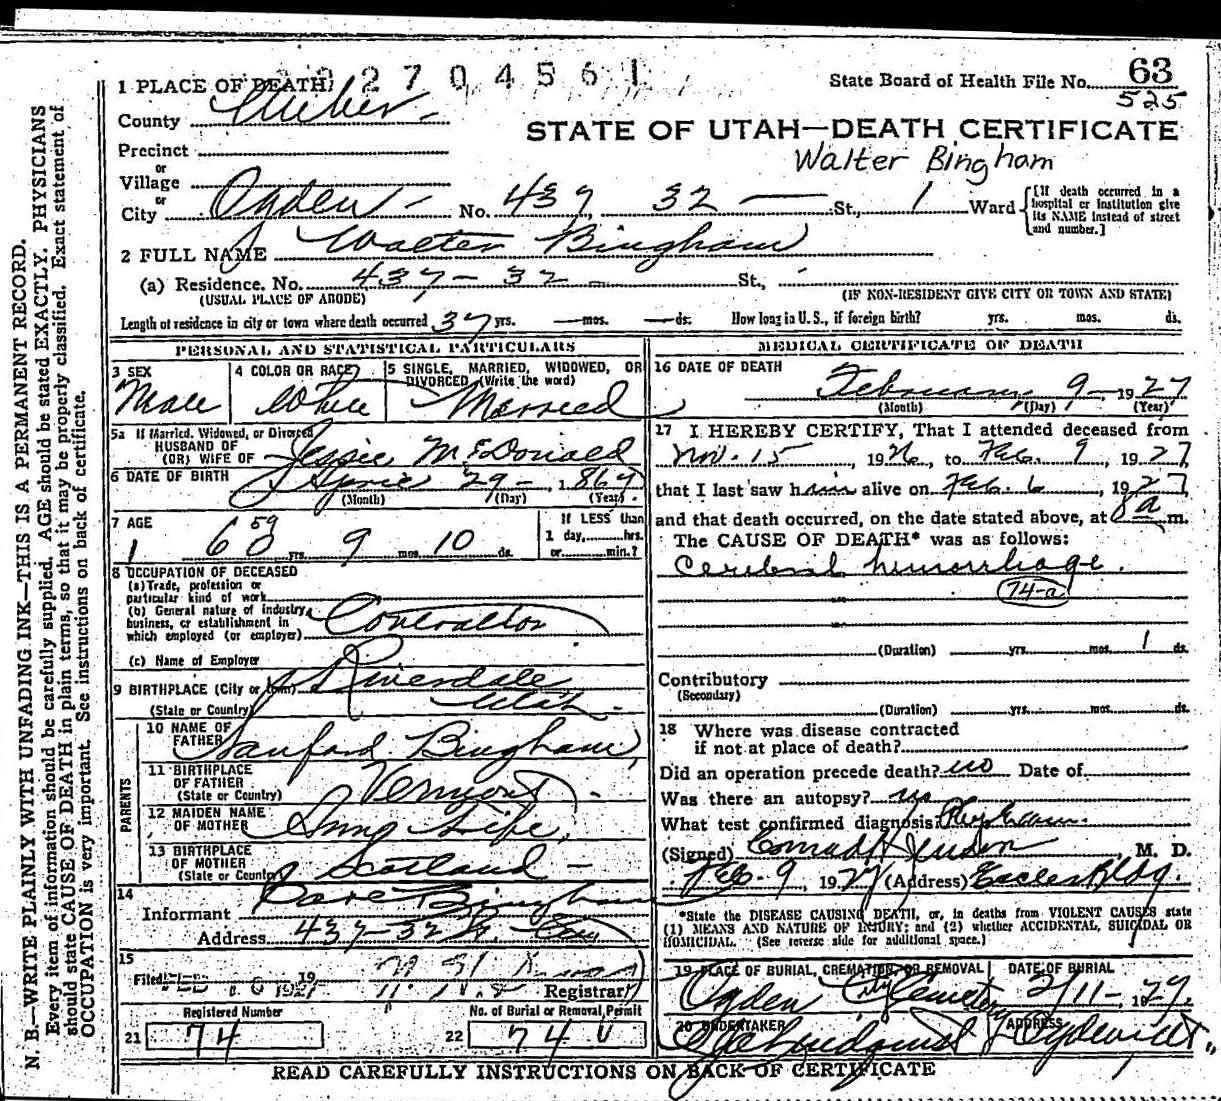 N. B.—WRITE PLAINLY WITH UNFADING INK—THIS IS A PERMANENT RECORD.
Every item of information should be carefully supplied. AGE should be stated EXACTLY. PHYSICIANS
should state CAUSE OF DEATH in plain terms, so that it may be properly classified. Exact statement of
OCCUPATION is very important. See instructions on back of certificate.
2704561
State Board of Health File No. 63
525
1 PLACE OF DEATH
County Weber
STATE OF UTAH—DEATH CERTIFICATE
Walter Bingham
Precinct
or
Village
or
City Ogden No. 437 32 St., 1 Ward
[If death occurred in a hospital or institution give its NAME instead of street and number.]
2 FULL NAME Walter Bingham
(a) Residence. No. 437-32 St.,
(USUAL PLACE OF ABODE) (IF NON-RESIDENT GIVE CITY OR TOWN AND STATE)
Length of residence in city or town where death occurred 37 yrs. — mos. — ds. How long in U. S., if foreign birth? yrs. mos. ds.
PERSONAL AND STATISTICAL PARTICULARS
3 SEX Male
4 COLOR OR RACE White
5 SINGLE, MARRIED, WIDOWED, OR DIVORCED (Write the word) Married
5a If Married, Widowed, or Divorced
HUSBAND OF
(OR) WIFE OF Jessie McDonald
6 DATE OF BIRTH April 29- 1867
(Month) (Day) (Year)
7 AGE 59 yrs. 9 mos. 10 ds.
If LESS than
1 day, hrs.
or min.?
8 OCCUPATION OF DECEASED
(a) Trade, profession or
particular kind of work
(b) General nature of industry,
business, or establishment in
which employed (or employer) Contractor
(c) Name of Employer
9 BIRTHPLACE (City or town) Riverdale
(State or Country) Utah
PARENTS
10 NAME OF FATHER Sanford Bingham
11 BIRTHPLACE OF FATHER (State or Country) Vermont
12 MAIDEN NAME OF MOTHER
13 BIRTHPLACE OF MOTHER (State or Country) Scotland
14
Informant Bingham
Address 437-32
15
Filed FEB 10 1927 Registrar
Registered Number
21 74
No. of Burial or Removal Permit
22 74
MEDICAL CERTIFICATE OF DEATH
16 DATE OF DEATH February 9- 1927
(Month) (Day) (Year)
17 I HEREBY CERTIFY, That I attended deceased from
Nov. 15, 1926, to Feb. 9, 1927,
that I last saw him alive on Feb. 6, 1927,
and that death occurred, on the date stated above, at 8 a m.
The CAUSE OF DEATH* was as follows:
Cerebral hemorrhage.
74-a
(Duration) yrs. mos. 1 ds.
Contributory
(Secondary)
(Duration) yrs. mos. ds.
18 Where was disease contracted
if not at place of death?
Did an operation precede death? no Date of
Was there an autopsy? no
What test confirmed diagnosis?
(Signed) Conrad H Jensen, M. D.
Feb. 9, 1927 (Address) Eccles Bldg.
*State the DISEASE CAUSING DEATH, or, in deaths from VIOLENT CAUSES state
(1) MEANS AND NATURE OF INJURY; and (2) whether ACCIDENTAL, SUICIDAL OR
HOMICIDAL. (See reverse side for additional space.)
19 PLACE OF BURIAL, CREMATION, OR REMOVAL DATE OF BURIAL
Ogden City Cemetery 2/11-, 1927.
20 UNDERTAKER ADDRESS
Lindquist
READ CAREFULLY INSTRUCTIONS ON BACK OF CERTIFICATE